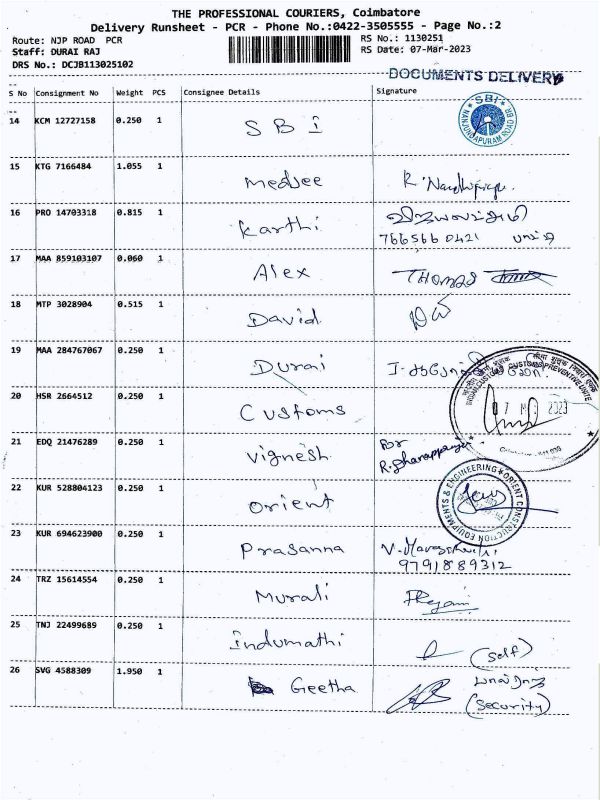 THE PROFESSIONAL COURIERS, Coimbatore
Delivery Runsheet - PCR - Phone No.:0422-3505555 - Page No.:2
Route: NJP ROAD PCR
RS No.: 1130251
Staff: DURAI RAJ
RS Date: 07-Mar-2023
DRS No.: DCJB113025102
DOCUMENTS DELIVERY
S No Consignment No Weight PCS Consignee Details Signature
14 KCM 12727158 0.250 1 SBI
SBI NANJUNDAPURAM ROAD BR.
15 KTG 7166484 1.055 1 medsee R.
16 PRO 14703318 0.815 1 Karthi
766566 0421
17 MAA 859103107 0.060 1 Alex THOMAS
18 MTP 3028904 0.515 1 David
19 MAA 284767067 0.250 1 Durai
INDIAN CUSTOMS PREVENTIVE UNIT
20 HSR 2664512 0.250 1 Customs
2023
21 EDQ 21476289 0.250 1 Vignesh for
22 KUR 528804123 0.250 1 Orient
ORIENT CONSTRUCTION EQUIPMENTS & ENGINEERING
23 KUR 694623900 0.250 1 Prasanna V.
9791889312
24 TRZ 15614554 0.250 1 Murali
25 TNJ 22499689 0.250 1 Indumathi (self)
26 SVG 4588309 1.950 1 Geetha
(Security)